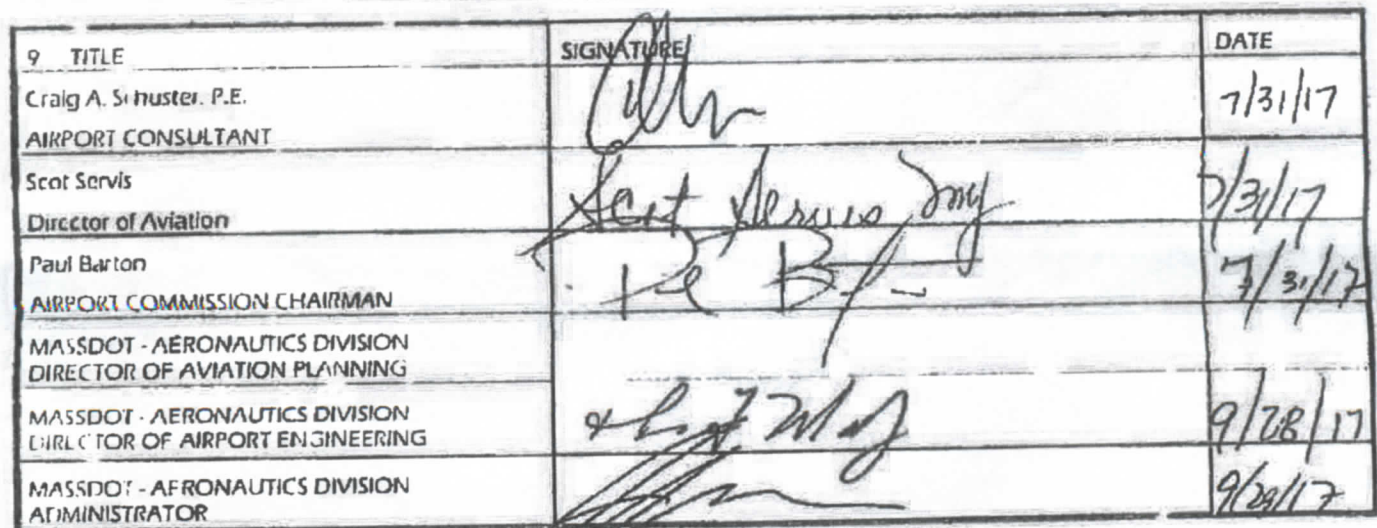 9 TITLE SIGNATURE DATE
Craig A. Schuster, P.E.
AIRPORT CONSULTANT 7/31/17
Scot Servis Scot Servis
Director of Aviation 7/31/17
Paul Barton
AIRPORT COMMISSION CHAIRMAN 7/31/17
MASSDOT - AERONAUTICS DIVISION
DIRECTOR OF AVIATION PLANNING
MASSDOT - AERONAUTICS DIVISION
DIRECTOR OF AIRPORT ENGINEERING 9/28/17
MASSDOT - AERONAUTICS DIVISION
ADMINISTRATOR 9/29/17